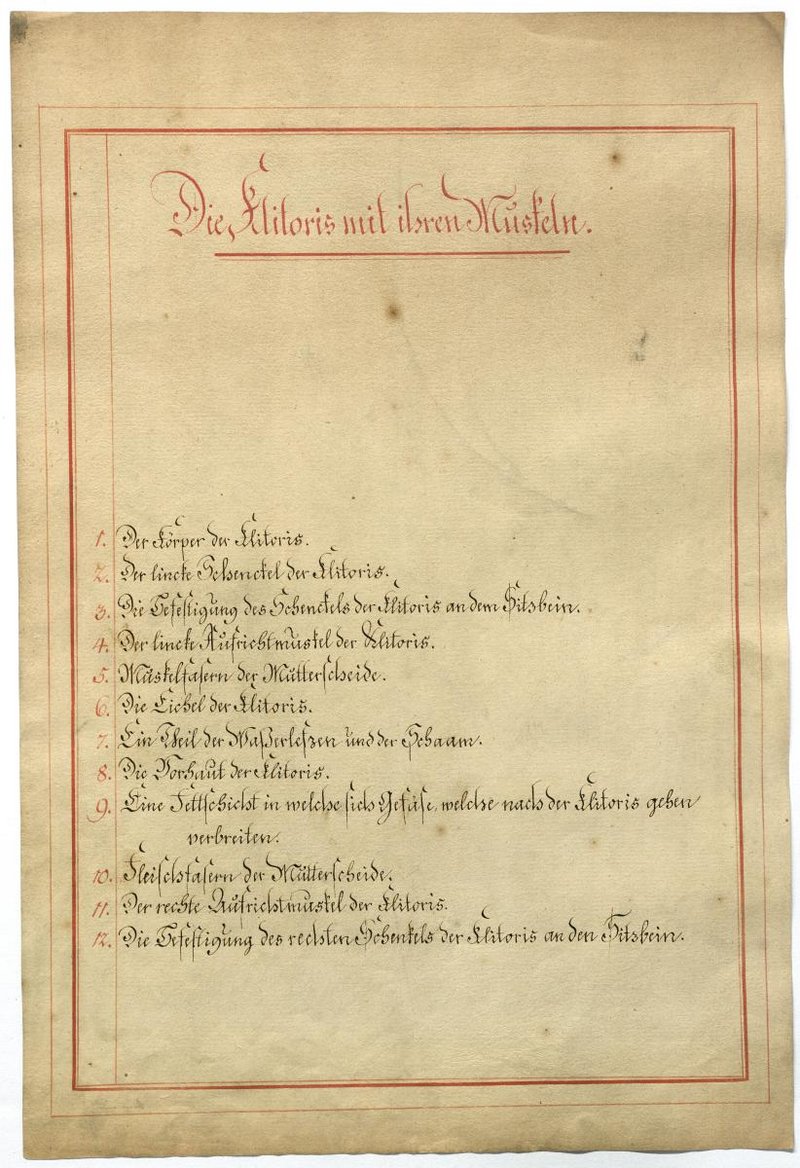 Die Klitoris mit ihren Muskeln.
1. Der Körper der Klitoris.
2. Der lincke Schenckel der Klitoris.
3. Die Befestigung des Schenckels der Klitoris an dem Sitsbein.
4. Der lincke Aufrichtmuskel der Klitoris.
5. Muskelfasern der Mutterscheide.
6. Die Eichel der Klitoris.
7. Ein Theil der Waßerlefzen und der Schaam.
8. Die Vorhaut der Klitoris.
9. Eine Fettschicht in welche sich Gefäse, welche nach der Klitoris gehen
verbreiten.
10. Fleischfasern der Mutterscheide.
11. Der rechte Aufrichtmuskel der Klitoris.
12. Die Befestigung des rechten Schenkels der Klitoris an den Sitsbein.